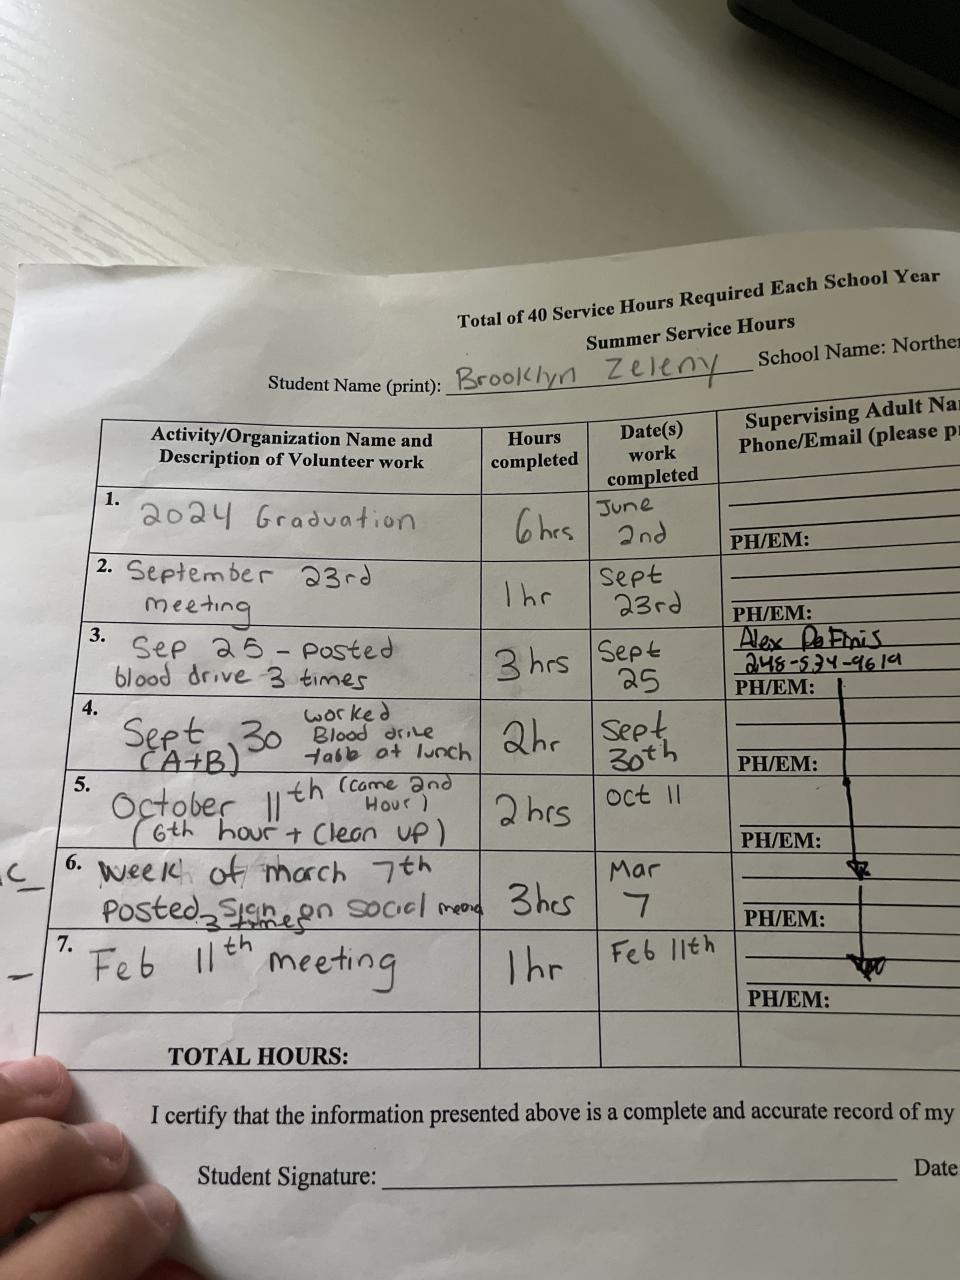 Total of 40 Service Hours Required Each School Year
Summer Service Hours
Student Name (print): Brooklyn Zeleny School Name: Norther
Activity/Organization Name and
Description of Volunteer work
Hours
completed
Date(s)
work
completed
Supervising Adult Na
Phone/Email (please p
1. 2024 Graduation
6 hrs
June
2nd
PH/EM:
2. September 23rd
meeting
1 hr
Sept
23rd
PH/EM:
3. Sep 25 - posted
blood drive 3 times
3 hrs
Sept
25
Alex
248-534-9619
PH/EM:
4. Sept 30 worked
Blood drive
(A+B) table at lunch
2hr
Sept
30th
PH/EM:
5. October 11th (came 2nd
Hour)
(6th hour + Clean up)
2 hrs
Oct 11
PH/EM:
6. week of march 7th
posted sign on social
3 times
3hrs
Mar
7
PH/EM:
7. Feb 11th meeting
1 hr
Feb 11th
PH/EM:
TOTAL HOURS:
I certify that the information presented above is a complete and accurate record of my
Student Signature: Date